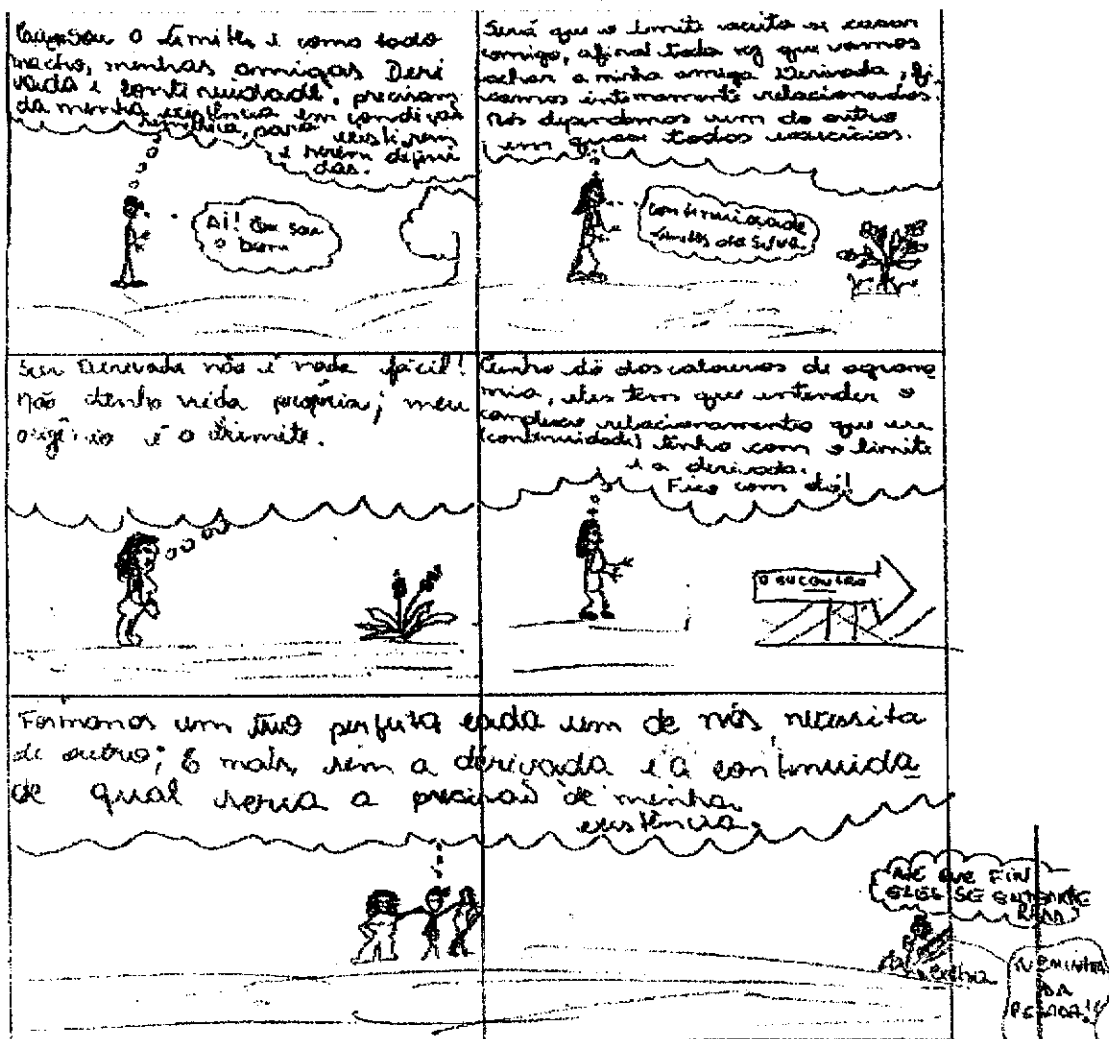 sou o Limites e como todo
macho, minhas amigas Deri
vada e continuidade, precisam
da minha existência em condição
para existirem
e serem defini
das.
Ai! Eu sou
o bom
Será que o limite aceita se casar
comigo, afinal toda vez que vamos
achar a minha amiga Derivada, fi
camos intimamente relacionados.
Nós dependemos um do outro
em quase todos exercícios.
Continuidade
Limites da Silva.
Ser Derivada não é nada fácil!
Não tenho vida própria; meu
é o Limite.
Tenho dó dos calouros de agrono
mia, eles tem que entender o
complexo relacionamento que eu
(continuidade) tenho com o limite
e a derivada.
Fico com dó!
O ENCONTRO
Formamos um trio perfeito cada um de nós necessita
de outro; E mais, sem a derivada e a continuida
de qual seria a precisão de minha
existência.
ATÉ QUE FIM
ELES SE ENTENDE
RAM
DA